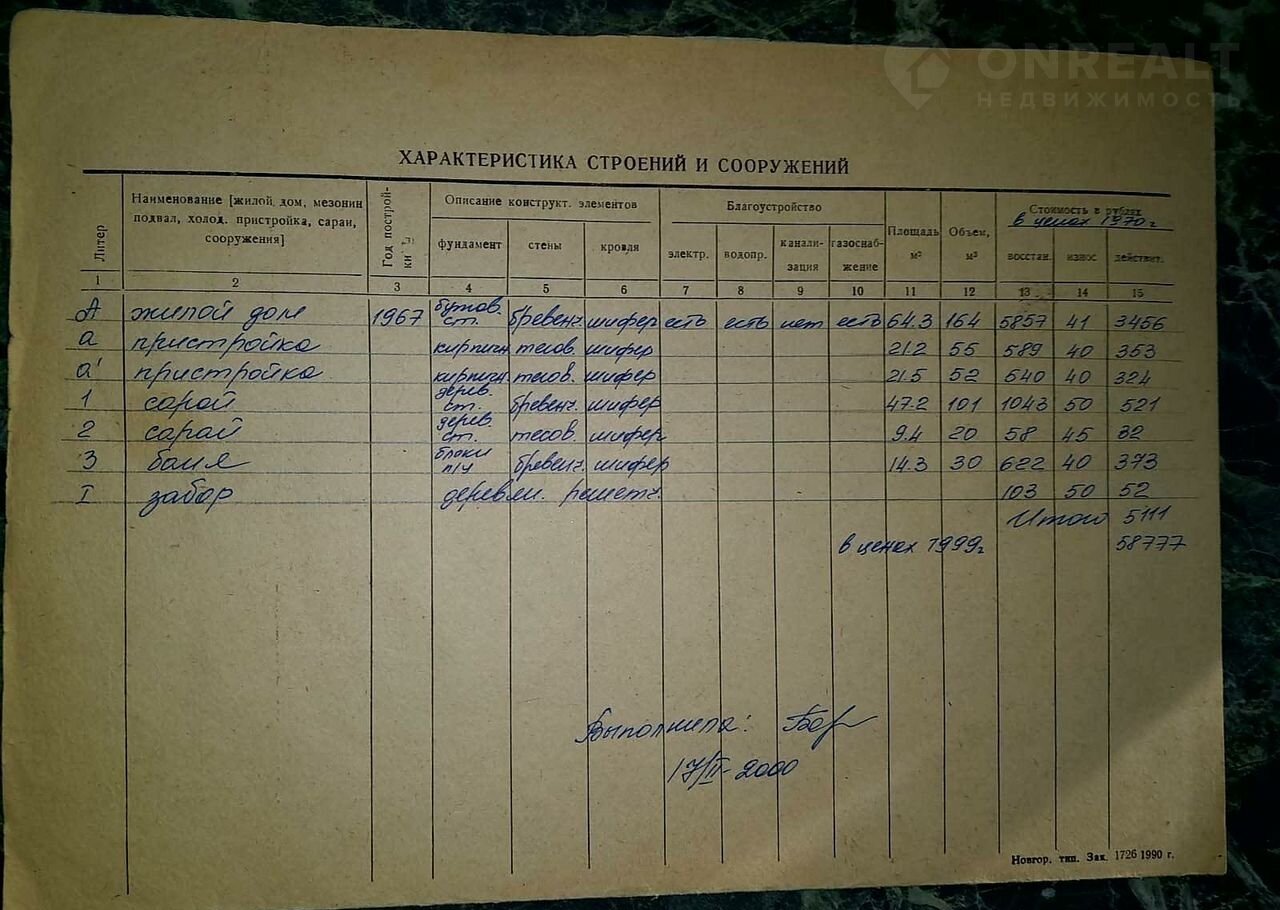 ONREALT
НЕДВИЖИМОСТЬ
ХАРАКТЕРИСТИКА СТРОЕНИЙ И СООРУЖЕНИЙ
Литер Наименование [жилой, дом, мезонин подвал, холод. пристройка, сараи, сооружения] Год постройки Описание конструкт. элементов Благоустройство Площадь м² Объем, м³ Стоимость в рублях
в ценах 1970 г
фундамент стены кровля электр. водопр. канализация газоснабжение восстан. износ действит.
1 2 3 4 5 6 7 8 9 10 11 12 13 14 15
А жилой дом 1967 бутов. ст. бревенч. шифер есть есть нет есть 64.3 164 5857 41 3456
а пристройка кирпичн. тесов. шифер 21.2 55 589 40 353
а' пристройка кирпичн. тесов. шифер 21.5 52 540 40 324
1 сарай дерев. ст. бревенч. шифер 47.2 101 1043 50 521
2 сарай дерев. ст. тесов. шифер 9.4 20 58 45 32
3 баня блоки п/ч бревенч. шифер 14.3 30 622 40 373
I забор деревян. решетч. 103 50 52
Итого 5111
в ценах 1999г 58777
Выполнила:
17/II-2000
Новгор. тип. Зак. 1726 1990 г.